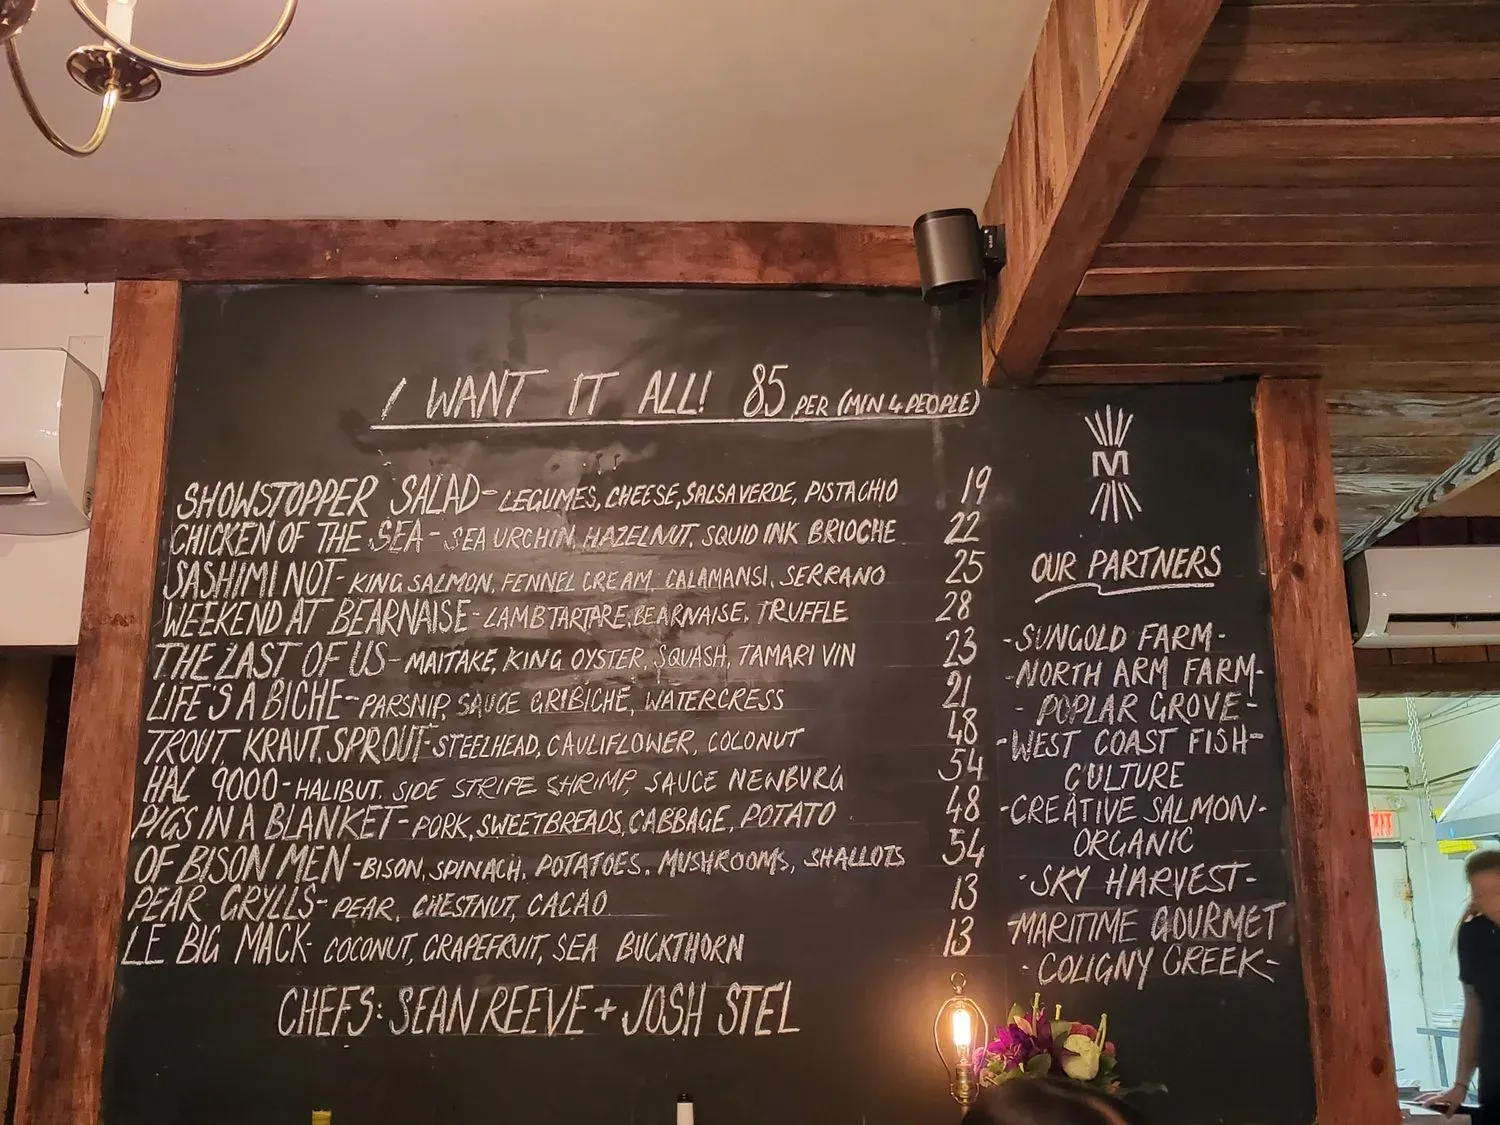 I WANT IT ALL! 85 PER (MIN 4 PEOPLE)
SHOWSTOPPER SALAD - LEGUMES, CHEESE, SALSA VERDE, PISTACHIO 19
CHICKEN OF THE SEA - SEA URCHIN, HAZELNUT, SQUID INK BRIOCHE 22
SASHIMI NOT - KING SALMON, FENNEL CREAM, CALAMANSI, SERRANO 25
WEEKEND AT BEARNAISE - LAMB TARTARE, BEARNAISE, TRUFFLE 28
THE LAST OF US - MAITAKE, KING OYSTER, SQUASH, TAMARI VIN 23
LIFE'S A BICHE - PARSNIP, SAUCE GRIBICHE, WATERCRESS 21
TROUT, KRAUT, SPROUT - STEELHEAD, CAULIFLOWER, COLONUT 48
HAL 9000 - HALIBUT, SIDE STRIPE SHRIMP, SAUCE NEWBURG 54
PIGS IN A BLANKET - PORK, SWEETBREADS, CABBAGE, POTATO 48
OF BISON MEN - BISON, SPINACH, POTATOES, MUSHROOMS, SHALLOTS 54
PEAR GRYLLS - PEAR, CHESTNUT, CACAO 13
LE BIG MACK - COCONUT, GRAPEFRUIT, SEA BUCKTHORN 13
CHEFS: SEAN REEVE + JOSH STEL
M
OUR PARTNERS
- SUNGOLD FARM -
- NORTH ARM FARM -
- POPLAR GROVE -
- WEST COAST FISH -
CULTURE
- CREATIVE SALMON -
ORGANIC
- SKY HARVEST -
- MARITIME GOURMET
- COLIGNY CREEK -
EXIT